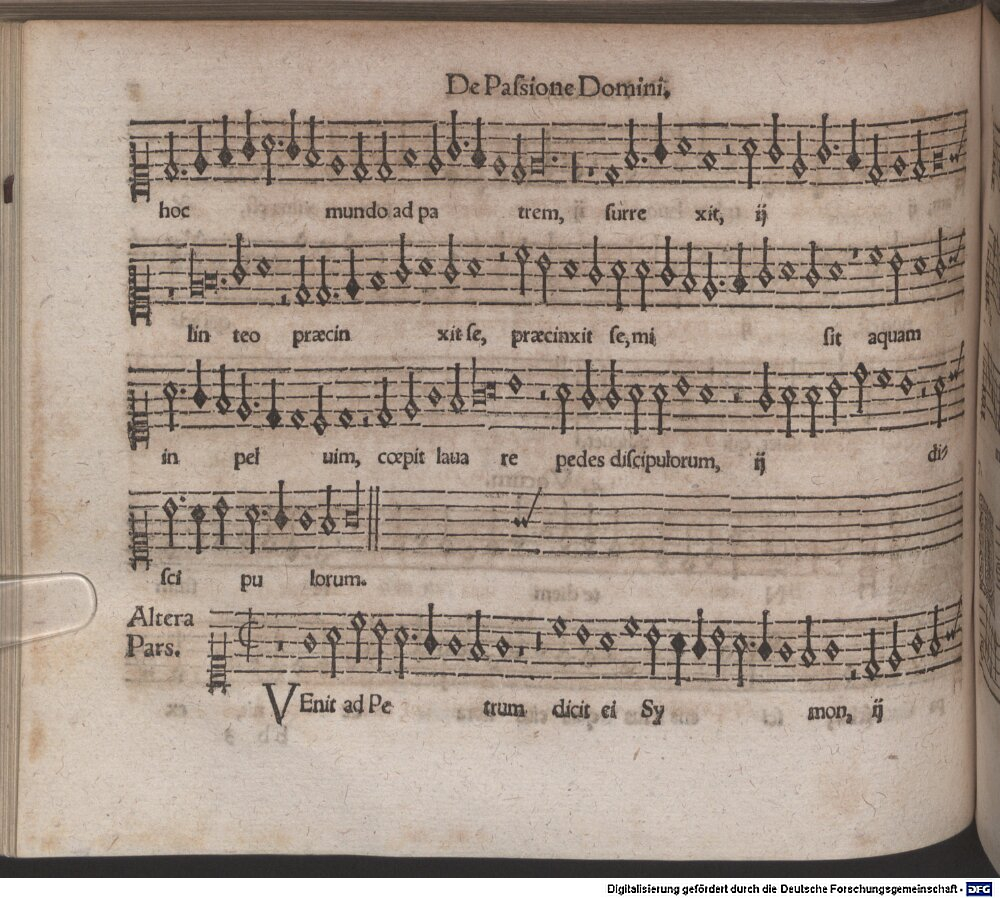 De Paſsione Domini.
hoc mundo ad pa trem, ſurre xit, ij
lin teo præcin xit ſe, præcinxit ſe, mi ſit aquam
in pel uim, cœpit laua re pedes diſcipulorum, ij di-
ſci pu lorum.
Altera
Pars.
VEnit ad Pe trum dicit ei Sy mon, ij
Digitalisierung gefördert durch die Deutsche Forschungsgemeinschaft - DFG